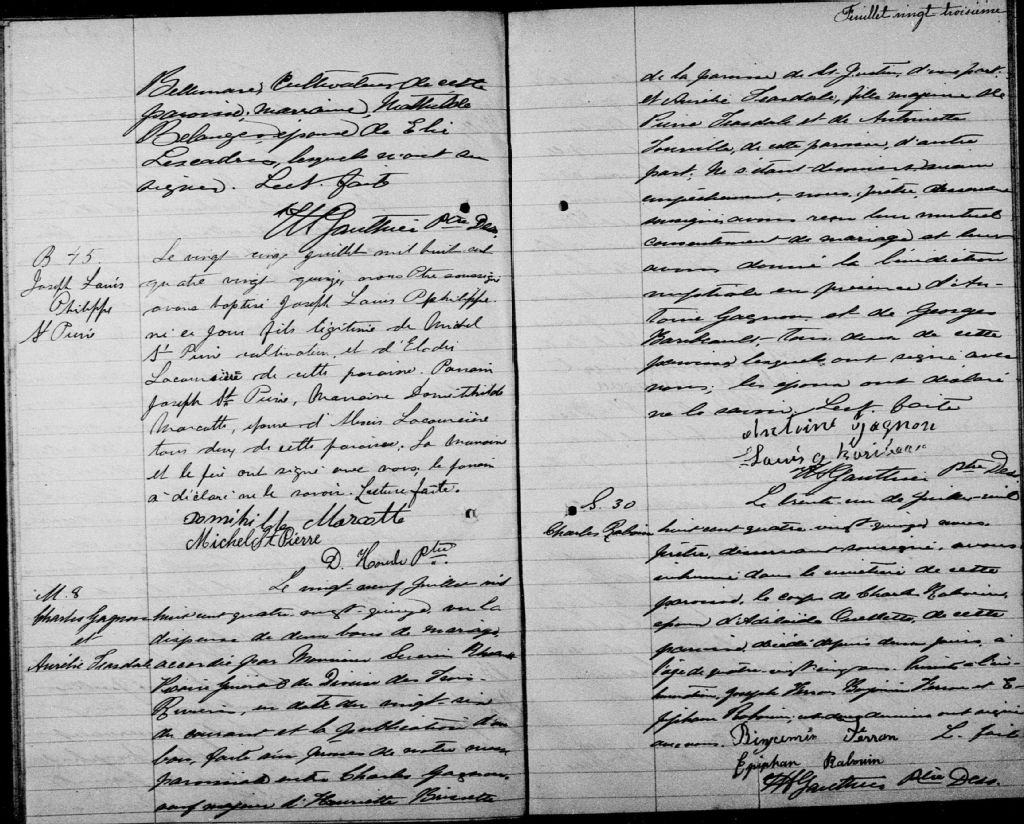 Bellemare, Cultivateur de cette
paroisse, marraine, Mathilde
Belanger épouse de Elie
Lescadres, lesquels n'ont su
signer. Lect. faite
Gauthier Ptre Dess.
B 45.
Joseph Louis
Philippe
St Pierre
Le vingt cinq juillet mil huit cent
quatre vingt quinze, nous Ptre soussigné
avons baptisé Joseph Louis Philippe
né ce jour fils légitime de Michel
St Pierre cultivateur, et d'Elodie
Lacoursière de cette paroisse. Parrain
Joseph St Pierre, Marraine Domithilde
Marcotte, épouse d'Moïse Lacoursière
tous deux de cette paroisse. La marraine
et le père ont signé avec nous, le parrain
a déclaré ne le savoir. Lecture faite.
Domithilde Marcotte
Michel St Pierre
D. Houde Ptre
M. 8
Charles Gagnon
et
Aurélie Teasdale
Le vingt-neuf Juillet mil
huit cent quatre vingt-quinze, vu la
dispense de deux bans de mariage
accordée par Monsieur Séverin
Vicaire Général du Diocèse des Trois
Rivières, en date du vingt-six
du courant et la publication d'un
ban, faite au prône de notre messe
paroissiale entre Charles Gagnon
veuf majeur d'Henriette
Feuillet vingt troisième
de la paroisse de St Justin, d'une part.
et Aurélie Teasdale, fille majeure de
Pierre Teasdale et de Antoinette
de cette paroisse, d'autre
part. Ne s'étant découvert aucun
empêchement, nous, prêtre, desservant
soussigné, avons reçu leur mutuel
consentement de mariage et leur
avons donné la bénédiction
nuptiale en présence d'An-
toine Gagnon et de Georges
tous deux de cette
paroisse, lesquels ont signé avec
nous; les époux ont déclaré
ne le savoir. Lect. faite
Antoine Gagnon
Gauthier Ptre Dess.
S. 30
Charles Rabouin
Le trente un de Juillet mil
huit cent quatre vingt quinze, nous
prêtre, desservant soussigné, avons
inhumé dans le cimetière de cette
paroisse, le corps de Charles Rabouin,
époux d'Adélaïde Ouellette, de cette
paroisse décédé depuis deux jours, à
l'âge de quatre vingt cinq ans. Présents à l'in-
humation, Joseph Ferron Benjamin Ferron et E-
piphane Rabouin; ces deux derniers ont signé
avec nous. L. faite
Benjamin Ferron
Epiphan Rabouin
Gauthier Ptre Dess.